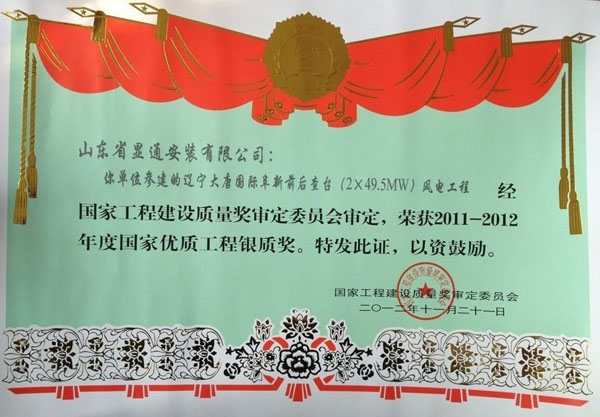 山东省显通安装有限公司：
你单位参建的辽宁大唐国际阜新前后查台（2×49.5MW）风电工程 经
国家工程建设质量奖审定委员会审定，荣获2011-2012
年度国家优质工程银质奖。特发此证，以资鼓励。
国家工程建设质量奖审定委员会
二〇一二年十一月二十一日